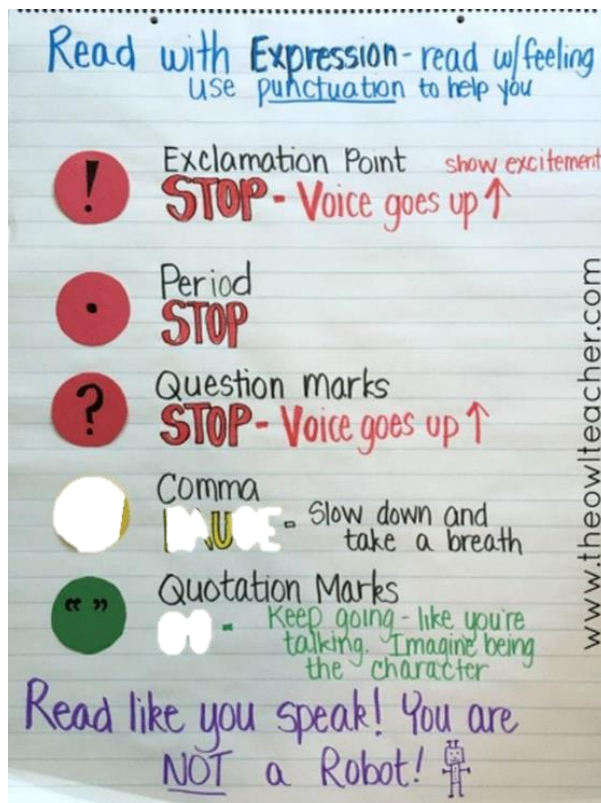 Read with Expression - read w/feeling
use punctuation to help you
!
Exclamation Point show excitement
STOP - Voice goes up ↑
.
Period
STOP
?
Question marks
STOP - Voice goes up ↑
Comma
- Slow down and
take a breath
“ ”
Quotation Marks
- Keep going - like you're
talking. Imagine being
the character
Read like you speak! You are
NOT a Robot!
www.theowlteacher.com